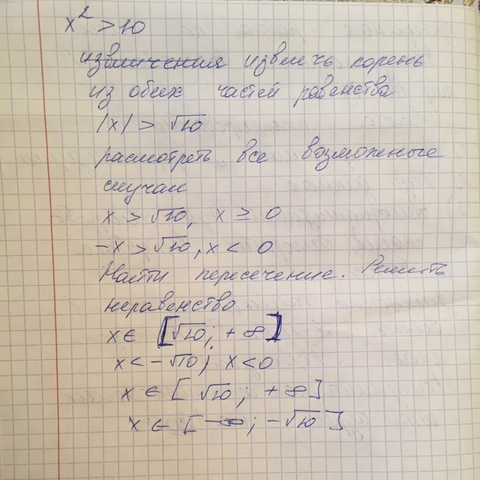 x² > 10
извлечь корень
из обеих частей равенства
|x| > √10
расмотреть все возможные
случаи
x > √10, x ≥ 0
-x > √10, x < 0
Найти пересечение. Решить
неравенство
x ∈ [√10; +∞]
x < -√10; x < 0
x ∈ [√10; +∞]
x ∈ [-∞; -√10]